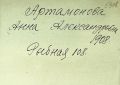 Артамонова
Анна Александров
1908
Рыбная 108